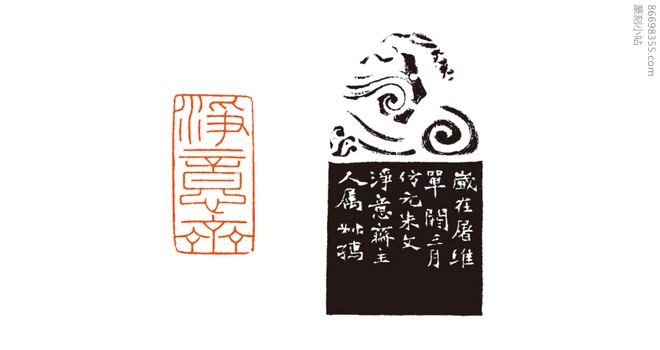 淨意齋
歲在屠維
單閼三月
仿元朱文
淨意齋主
人属 鶴
86698355.com
篆刻小站